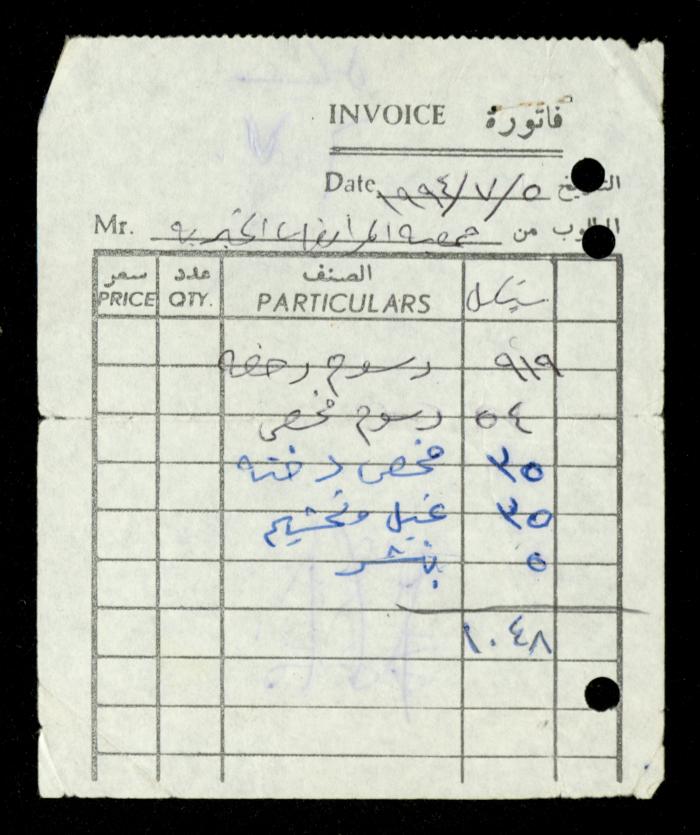 INVOICE فاتورة
Date ١٩٩٤/٧/٥ التاريخ
Mr. جمعية المرابطات الخيرية المطلوب من
سعر عدد الصنف شيكل
PRICE QTY. PARTICULARS
رسوم رخصة ٩١٩
رسوم فحص ٥٤
فحص رخصة ٣٥
غسيل وتشحيم ٣٥
بنشر ٥
١٠٤٨